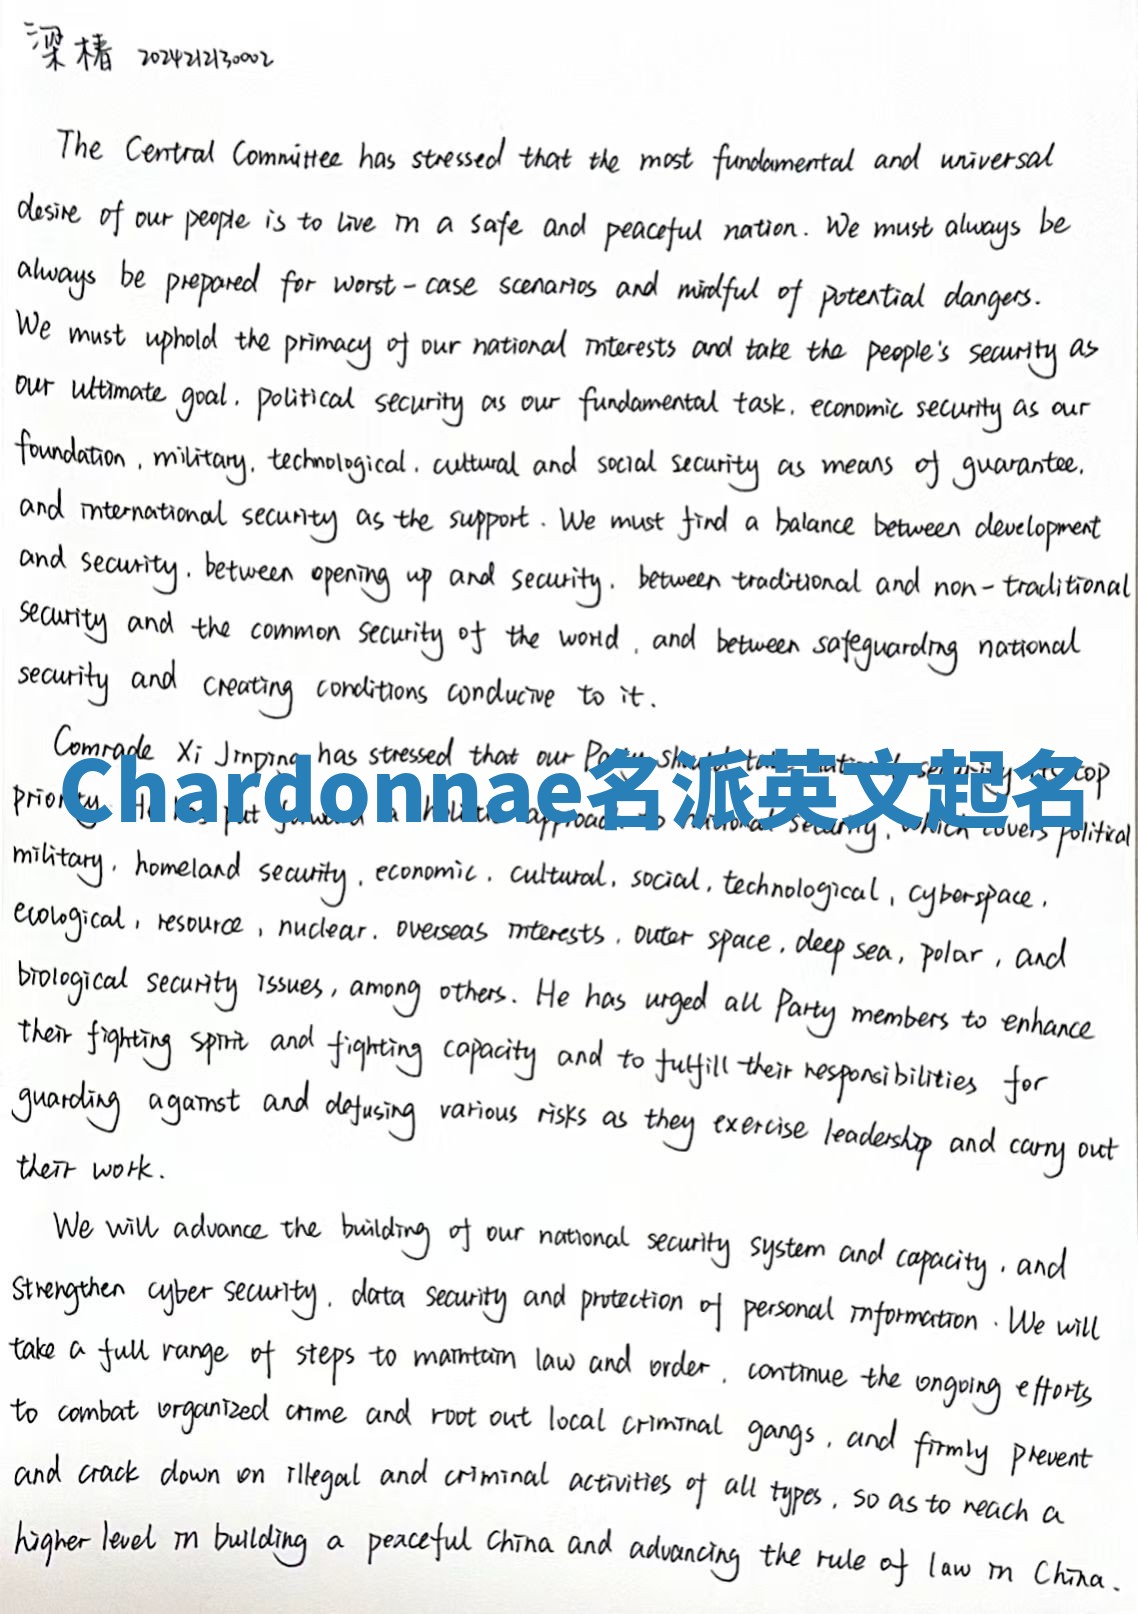 梁椿 2024212130002
The Central Committee has stressed that the most fundamental and universal
desire of our people is to live in a safe and peaceful nation. We must always be
always be prepared for worst-case scenarios and mindful of potential dangers.
We must uphold the primacy of our national interests and take the people's security as
our ultimate goal, political security as our fundamental task, economic security as our
foundation, military, technological, cultural and social security as means of guarantee,
and international security as the support. We must find a balance between development
and security, between opening up and security, between traditional and non-traditional
security and the common security of the world, and between safeguarding national
security and creating conditions conducive to it.
Comrade Xi Jinping has stressed that our Party should take national security its top
Chardonnae名派英文起名
priority. He has put forward a holistic approach to national security, which covers political
military, homeland security, economic, cultural, social, technological, cyberspace,
ecological, resource, nuclear, overseas interests, outer space, deep sea, polar, and
biological security issues, among others. He has urged all Party members to enhance
their fighting spirit and fighting capacity and to fulfill their responsibilities for
guarding against and defusing various risks as they exercise leadership and carry out
their work.
We will advance the building of our national security system and capacity, and
strengthen cyber security, data security and protection of personal information. We will
take a full range of steps to maintain law and order, continue the ongoing efforts
to combat organized crime and root out local criminal gangs, and firmly prevent
and crack down on illegal and criminal activities of all types, so as to reach a
higher level in building a peaceful China and advancing the rule of law in China.